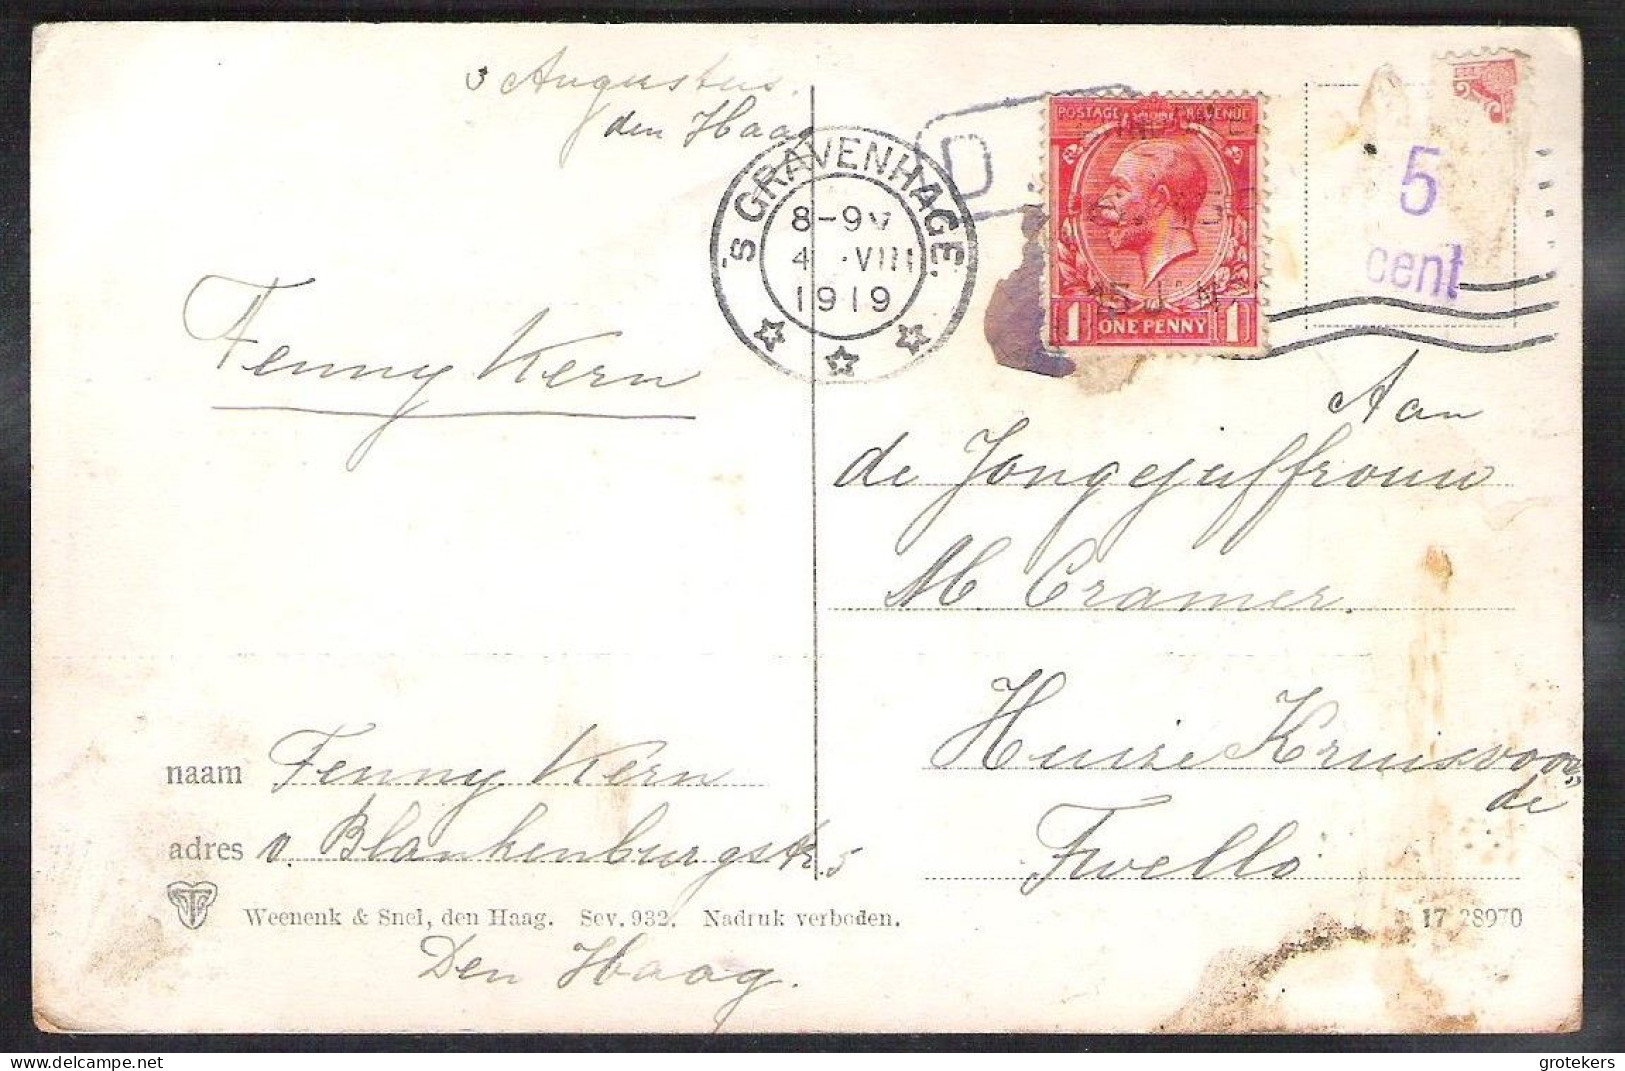 3 Augustus.
den Haag
's GRAVENHAGE.
8-9V
4 .VIII
1919
POSTAGE REVENUE
1 ONE PENNY 1
5
cent
Fenny Kern
Aan
de Jongejuffrouw
M. Cramer.
Huize Kruisvoor„
de
Twello
naam Fenny Kern
adres v. Blankenburgstr. 5
Weenenk & Snel, den Haag. Sev. 932. Nadruk verboden.
17 28970
Den Haag.
grotekers